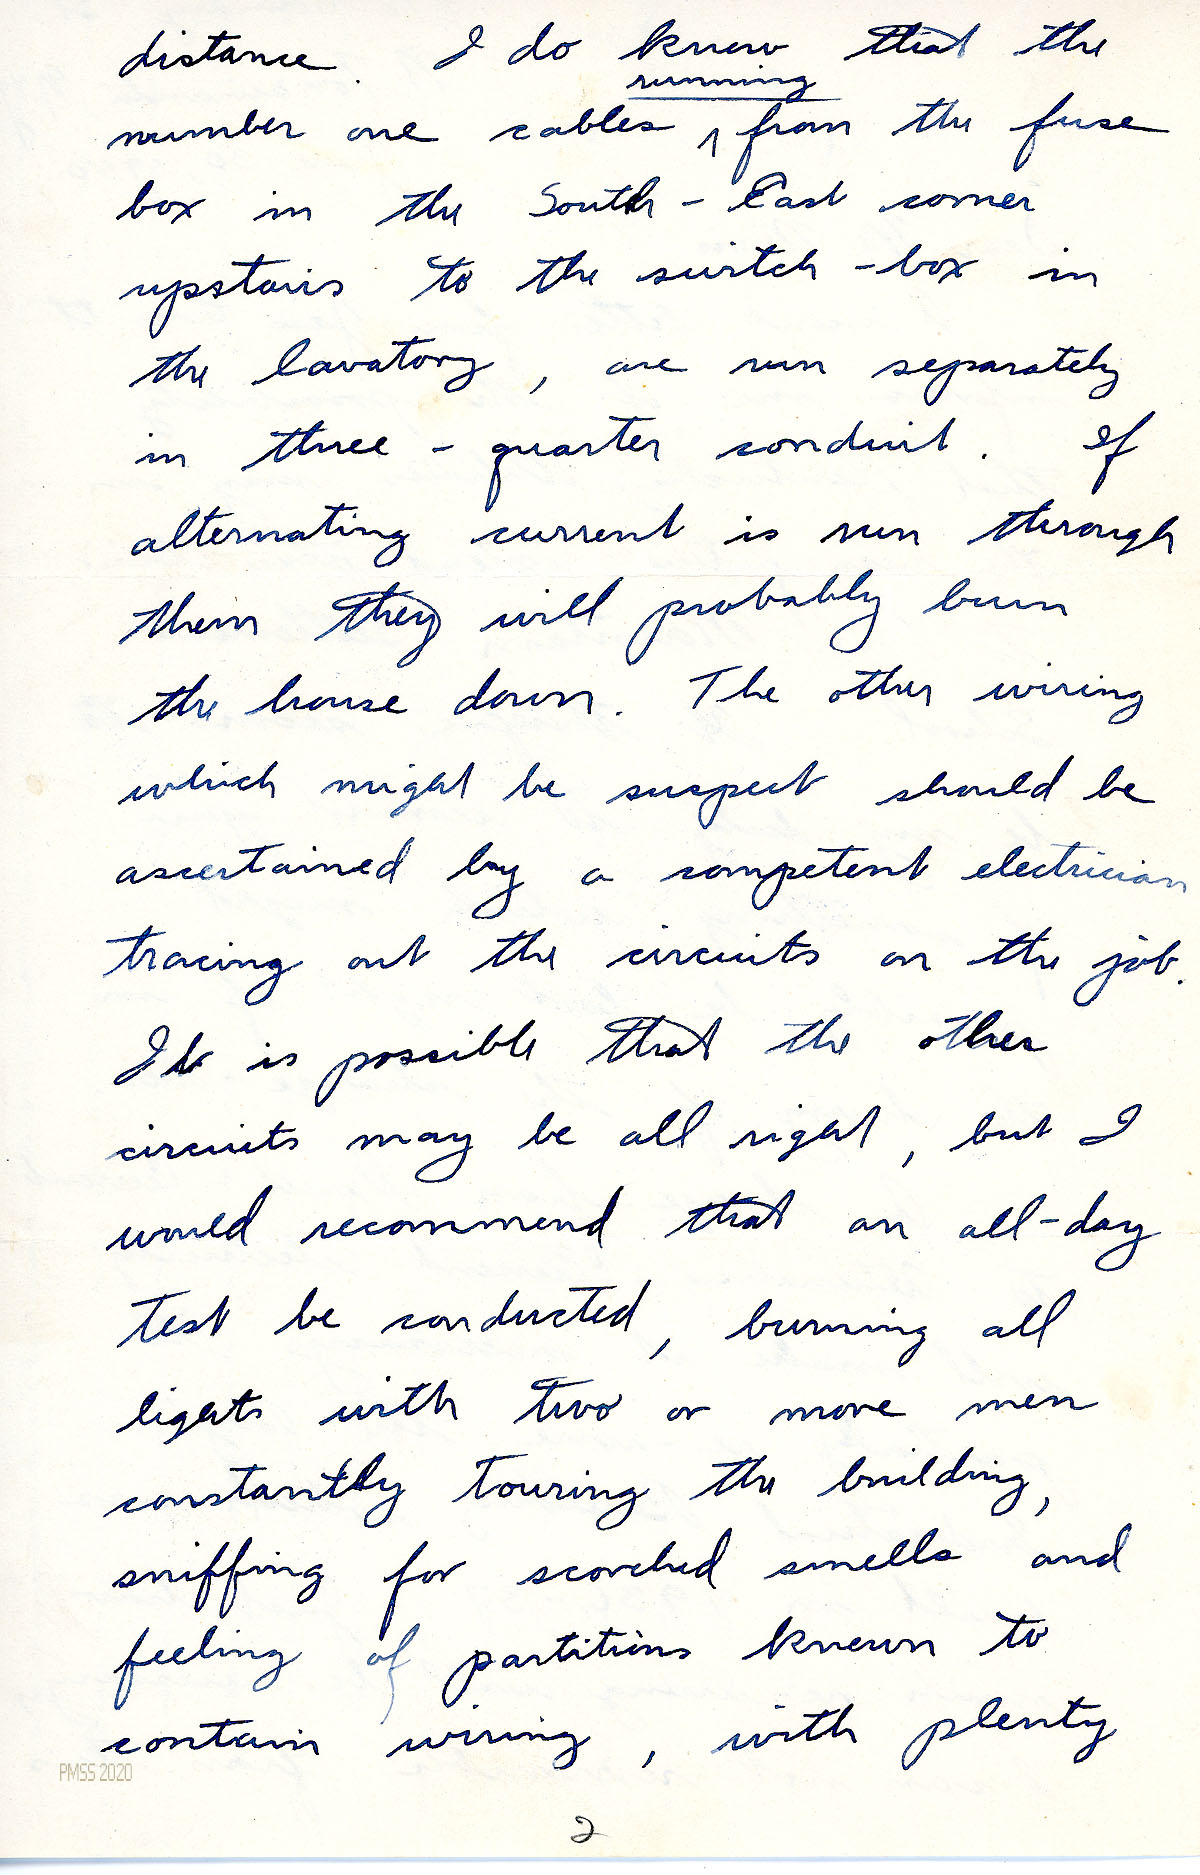 distance. I do know that the
running
number one cables ^ from the fuse
box in the South-East corner
upstairs to the switch-box in
the lavatory, are run separately
in three-quarter conduit. If
alternating current is run through
them they will probably burn
the house down. The other wiring
which might be suspect should be
ascertained by a competent electrician
tracing out the circuits on the job.
It is possible that the other
circuits may be all right, but I
would recommend that an all-day
test be conducted, burning all
lights with two or more men
constantly touring the building,
sniffing for scorched smells and
feeling of partitions known to
contain wiring, with plenty
PMSS 2020
2